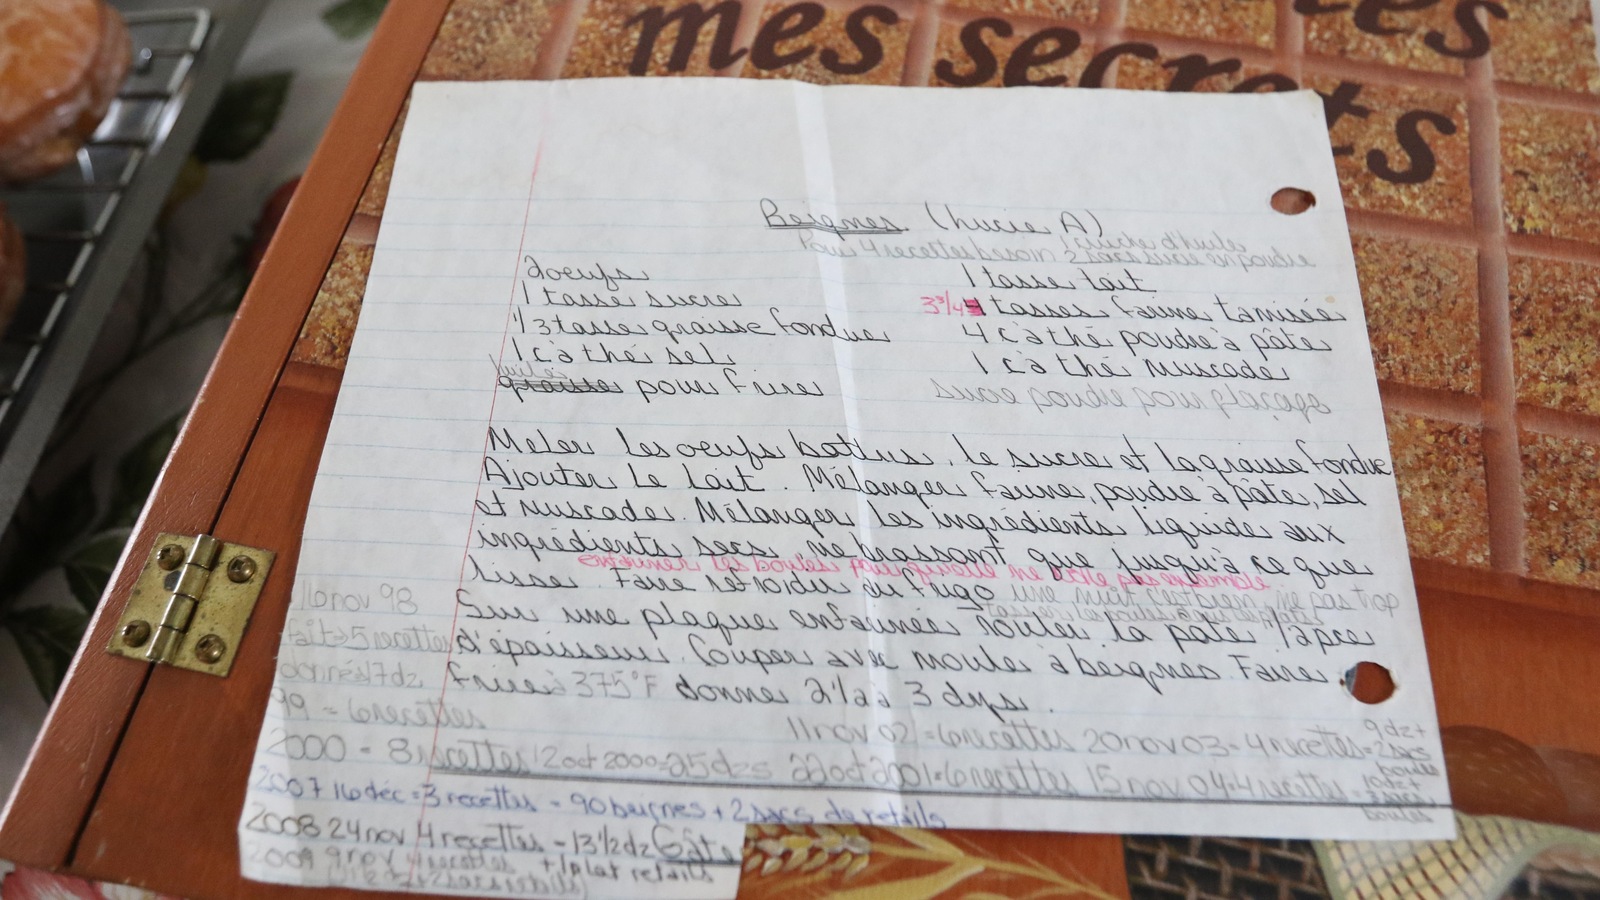 mes secrets
Beignes (Lucie A)
Pour 4 recettes besoin 1 cruche d'huile
2 sacs sucre en poudre
2 oeufs
1 tasse sucre
1/3 tasse graisse fondue
1 c à thé sel
huile
graisse pour frire
1 tasse lait
3 3/4 4 tasses farine tamisée
4 c à thé poudre à pâte
1 c à thé muscade
Sucre poudre pour glaçage
Meler les oeufs battus, le sucre et la graisse fondue
Ajouter le lait. Mélanger farine, poudre à pâte, sel
et muscade. Mélanger les ingrédients liquide aux
ingrédients secs, ne brassant que jusqu'à ce que
enfariner les boules pour qu'elle ne colle pas ensemble
lisse. Faire refroidir au frigo une nuit c'est bien, ne pas trop
Sur une plaque enfarinée rouler la pâte
d'épaisseur. Couper avec moule à beignes. Faire
frire à 375°F donne 2 1/2 à 3 dzs.
16 nov 98
fait 5 recettes
donnés 17 dz
99 = 6 recettes
2000 - 8 recettes 12 oct 2000 = 25 dzs 22 oct 2001 = 6 recettes 15 nov 04 = 4 recettes
11 nov 02 = 6 recettes 20 nov 03 = 4 recettes = 9 dz +
2 sacs
boules
10 dz +
3 sacs
boules
2007 16 déc = 3 recettes - 90 beignes + 2 sacs de retails
2008 24 nov 4 recettes - 13 1/2 dz
+ 1 plat retails
2009 9 nov 4 recettes